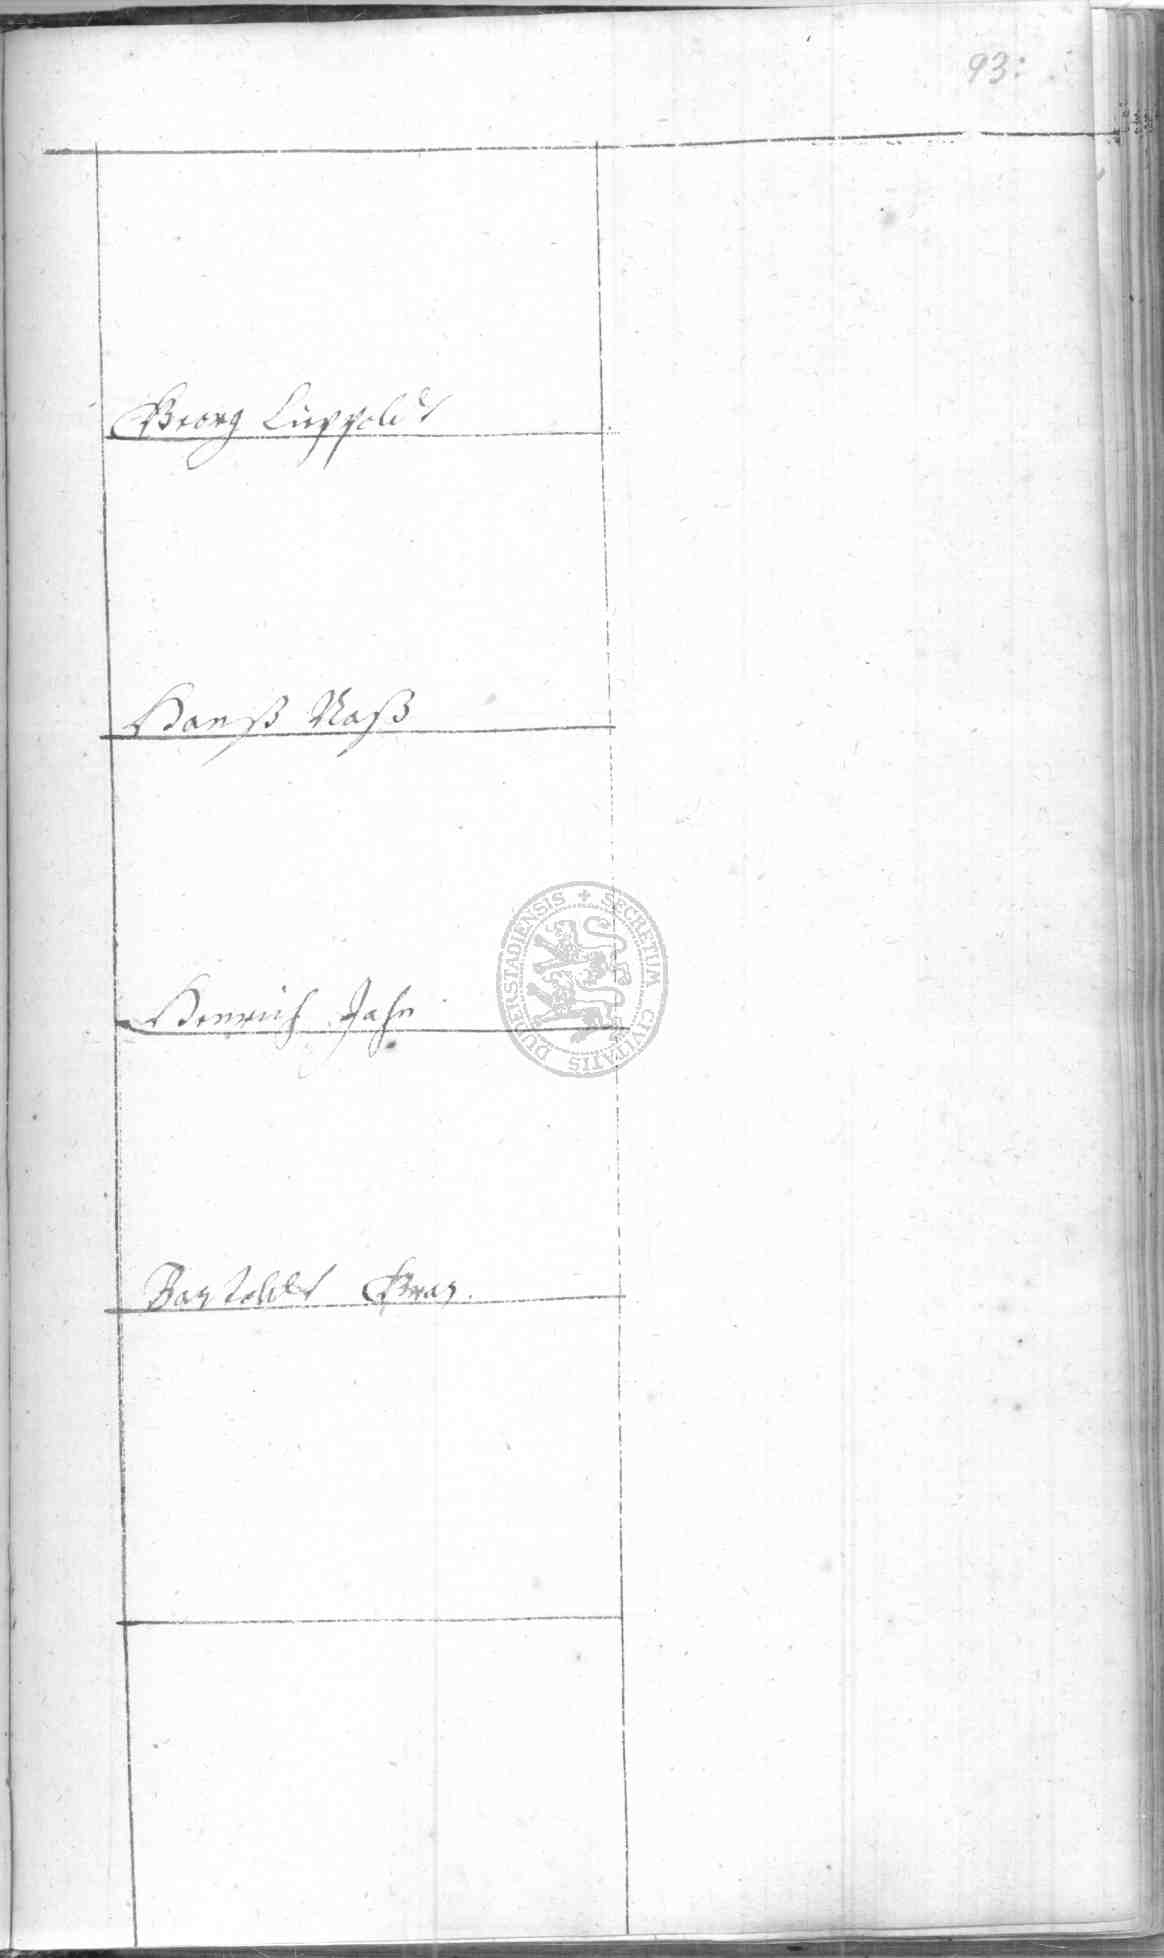 93:
Georg Luppoldt
Hanß Naß
Henrich Jahn
Bartoldt
SECRETUM CIVITATIS DUDERSTADIENSIS